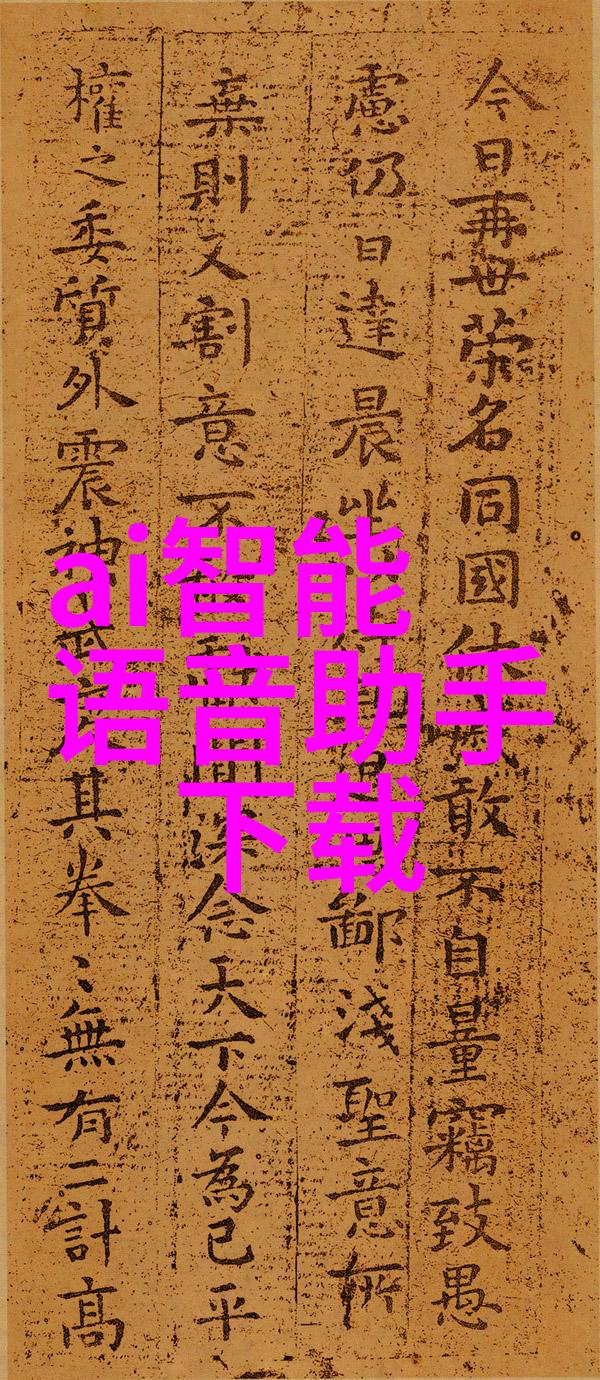 今日再世荣名同國休慼敢不自量竊致愚
慮仍日達晨坐
鄙淺聖意所
棄則又割意不
念天下今為已平
權之委質外震神
其拳〻無有二計高
ai智能
语音助手
下载